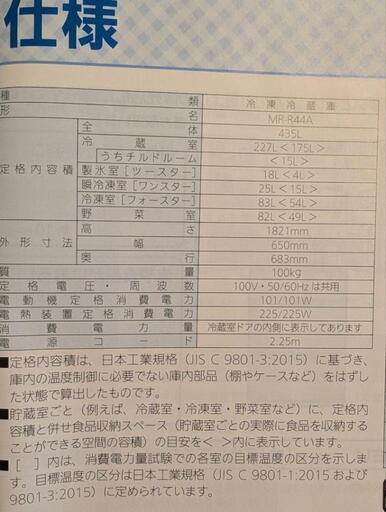 仕様
種 類 冷凍冷蔵庫
形 名 MR-R44A
定格内容積 全 体 435L
冷 蔵 室 227L <175L>
うちチルドルーム <15L>
製氷室[ツースター] 18L <4L>
瞬冷凍室[ワンスター] 25L <15L>
冷凍室[フォースター] 83L <54L>
野 菜 室 82L <49L>
外形寸法 高 さ 1821mm
幅 650mm
奥 行 683mm
質 量 100kg
定格電圧・周波数 100V・50/60Hz は共用
電動機定格消費電力 101/101W
電熱装置定格消費電力 225/225W
消費電力量 冷蔵室ドアの内側に表示してあります
電源コード 2.25m
■定格内容積は、日本工業規格(JIS C 9801-3:2015)に基づき、
庫内の温度制御に必要でない庫内部品(棚やケースなど)をはずし
た状態で算出したものです。
■貯蔵室ごと(例えば、冷蔵室・冷凍室・野菜室など)に、定格内
容積と併せ食品収納スペース(貯蔵室ごとの実際に食品を収納する
ことができる空間の容積)の目安を< >内に表示しています。
■[ ]内は、消費電力量試験での各室の目標温度の区分を示しま
す。目標温度の区分は日本工業規格(JIS C 9801-1:2015および
9801-3:2015)に定められています。